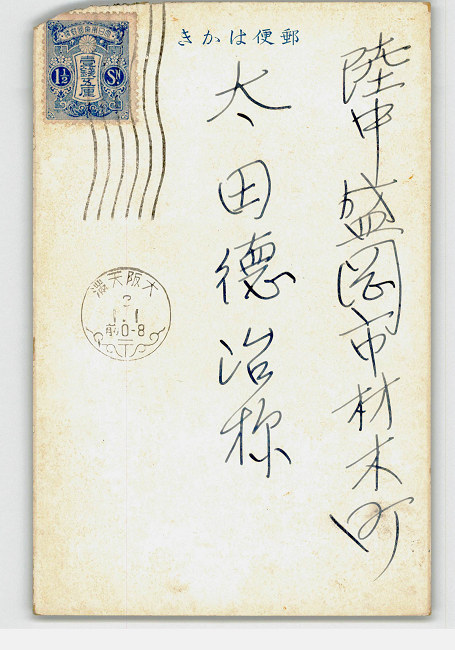 きかは便郵
陸中盛岡市材木町
太田德治様
大日本帝國郵便
壹錢五厘
1½ Sn
大阪天滿
2
1.1
前0-8